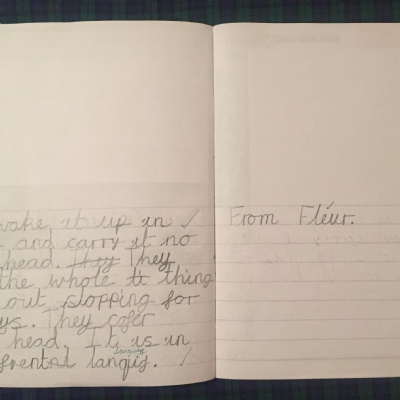 wake it up in ✓
and carry it no
head. They They
the whole tt thing
out stopping for
ys. They cofer
head. It is in
language
frental langij.
From Fléur.